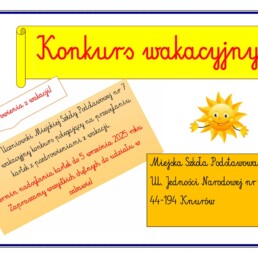 Konkurs wakacyjny
wienia z wakacji!
Uczniowski Miejskiej Szkoły Podstawowej nr 7
wakacyjny konkurs polegający na przesyłaniu
kartek z pozdrowieniami z wakacji.
Termin nadsyłania kartek do 5 września 2025 roku
Zapraszamy wszystkich chętnych do udziału w
zabawie!
Miejska Szkoła Podstawowa
Ul. Jedności Narodowej nr
44-194 Knurów